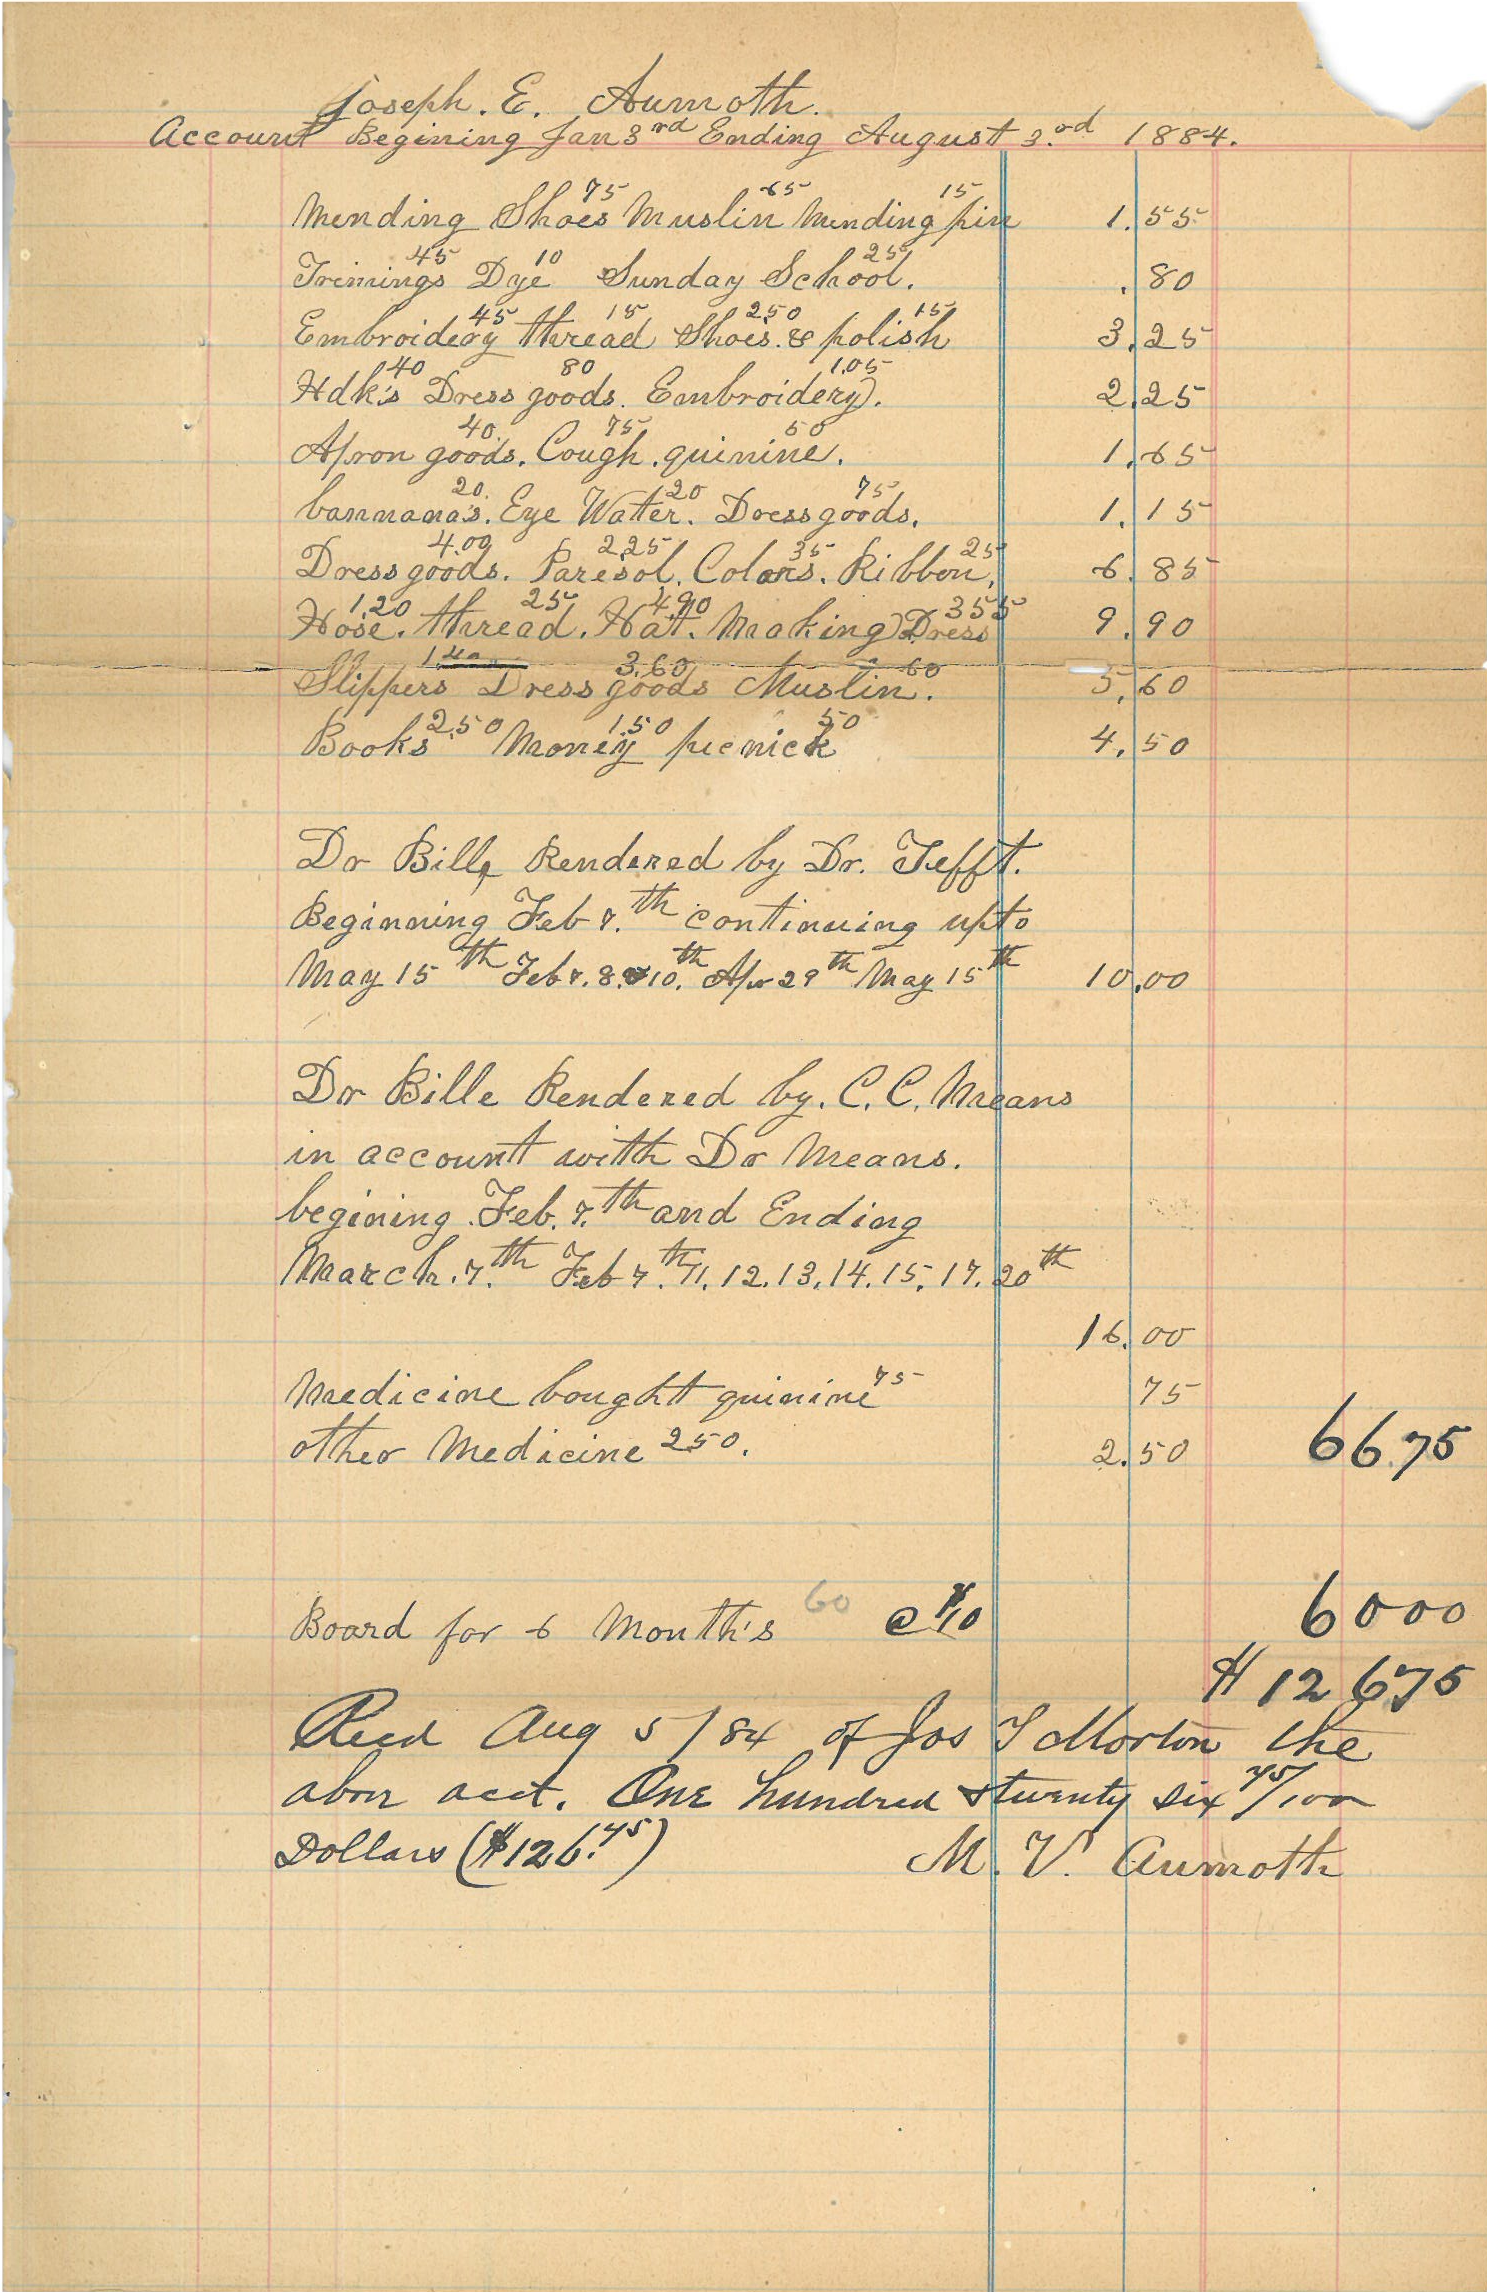 Joseph. E. Aumoth.
Account Begining Jan 3rd Ending August 3.rd 1884.
75 65 15
Mending Shoes Muslin Mending pin 1.55
45 10 25
Trimings Dye Sunday School. .80
45 15 2.50 15
Embroidery thread Shoes. & polish 3.25
40 80 1.05
Hdk's Dress goods. Embroidery. 2.25
40. 75 50
Apron goods. Cough. quinine. 1.65
20. 20 75
bannana's. Eye Watter. Dress goods. 1.15
4.00 2.25 35 25
Dress goods. Paresol. Colors. Ribbon. 6.85
1.20 25 4.90 355
Hose. thread. Hat. Making Dress 9.90
1.40 3.60 60
Slippers Dress goods Muslin. 5.60
2.50 1.50 50
Books Money picnick 4.50
Dr Bill Rendered by Dr. Tefft.
Beginning Feb 7.th continuing upto
May 15th Feb 7. 8. 10.th Apr 29th May 15th 10.00
Dr Bille Rendered by. C. C. Means
in account with Dr Means.
begining Feb. 7.th and Ending
March. 7.th Feb 7.th 11. 12. 13. 14. 15. 17. 20th
16.00
Medicine bought quinine 75 75
other Medicine 250. 2.50 66.75
Board for 6 Month's 60 @ $10 6000
$ 126 75
Recd Aug 5/84 of Jos T Morton the
abov acct. One hundred & twenty six 75/100
Dollars ($126.75) M. V. Aumoth